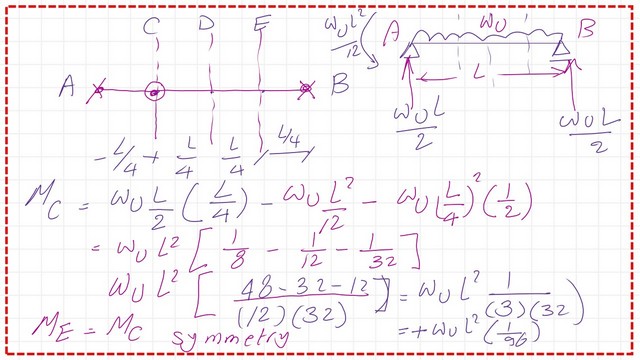 C D E
A B
-L/4 + L/4 L/4 L/4
W_U L²/12
A W_U B
L
W_U L/2 W_U L/2
M_C = W_U L/2 (L/4) - W_U L²/12 - W_U (L/4)² (1/2)
= W_U L² [1/8 - 1/12 - 1/32]
W_U L² [(48-32-12)/((12)(32))] = W_U L² 1/((3)(32))
M_E = M_C symmetry = +W_U L² (1/96)